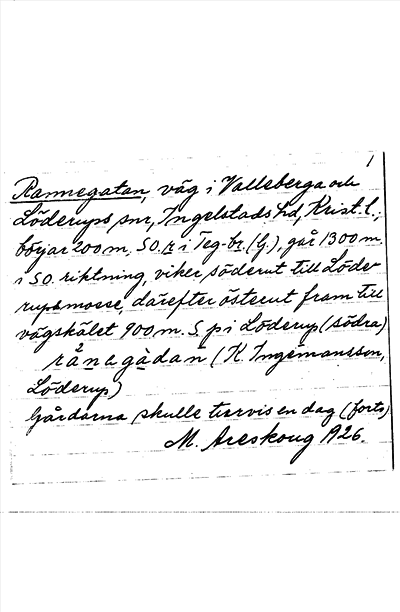 1
Rannegatan, väg i Valleberga och
Löderups snr, Ingelstads hd, Krist. l.;
börjar 200 m. SO. r i Teg-br. (G.), går 1300 m.
i SO. riktning, viker söderut till Löde-
rups mosse, därefter österut fram till
vägskälet 900 m. S. p i Löderup (södra)
rånagådan (K. Ingemansson,
Löderup)
Gårdarna skulle turvis en dag (forts)
M. Areskoug 1926.